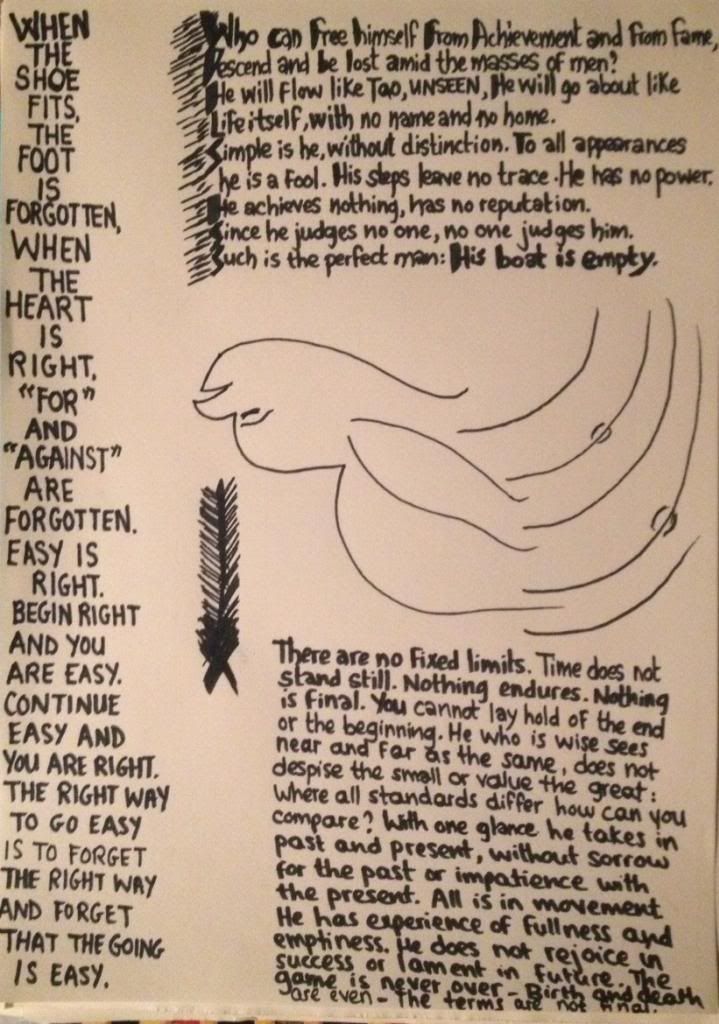 WHEN
THE
SHOE
FITS,
THE
FOOT
IS
FORGOTTEN,
WHEN
THE
HEART
IS
RIGHT,
"FOR"
AND
"AGAINST"
ARE
FORGOTTEN.
EASY IS
RIGHT.
BEGIN RIGHT
AND YOU
ARE EASY.
CONTINUE
EASY AND
YOU ARE RIGHT.
THE RIGHT WAY
TO GO EASY
IS TO FORGET
THE RIGHT WAY
AND FORGET
THAT THE GOING
IS EASY.
Who can Free himself From Achievement and From Fame,
Descend and be lost amid the masses of men?
He will Flow like Tao, UNSEEN, He will go about like
Life itself, with no name and no home.
Simple is he, without distinction. To all appearances
he is a Fool. His steps leave no trace. He has no power.
He achieves nothing, has no reputation.
Since he judges no one, no one judges him.
Such is the perfect man: His boat is empty.
There are no Fixed limits. Time does not
stand still. Nothing endures. Nothing
is Final. You cannot lay hold of the end
or the beginning. He who is wise sees
near and far as the same, does not
despise the small or value the great:
Where all standards differ how can you
compare? With one glance he takes in
past and present, without sorrow
for the past or impatience with
the present. All is in movement
He has experience of Fullness and
emptiness. He does not rejoice in
success or lament in Future. The
game is never over - Birth and death
are even - The terms are not Final.